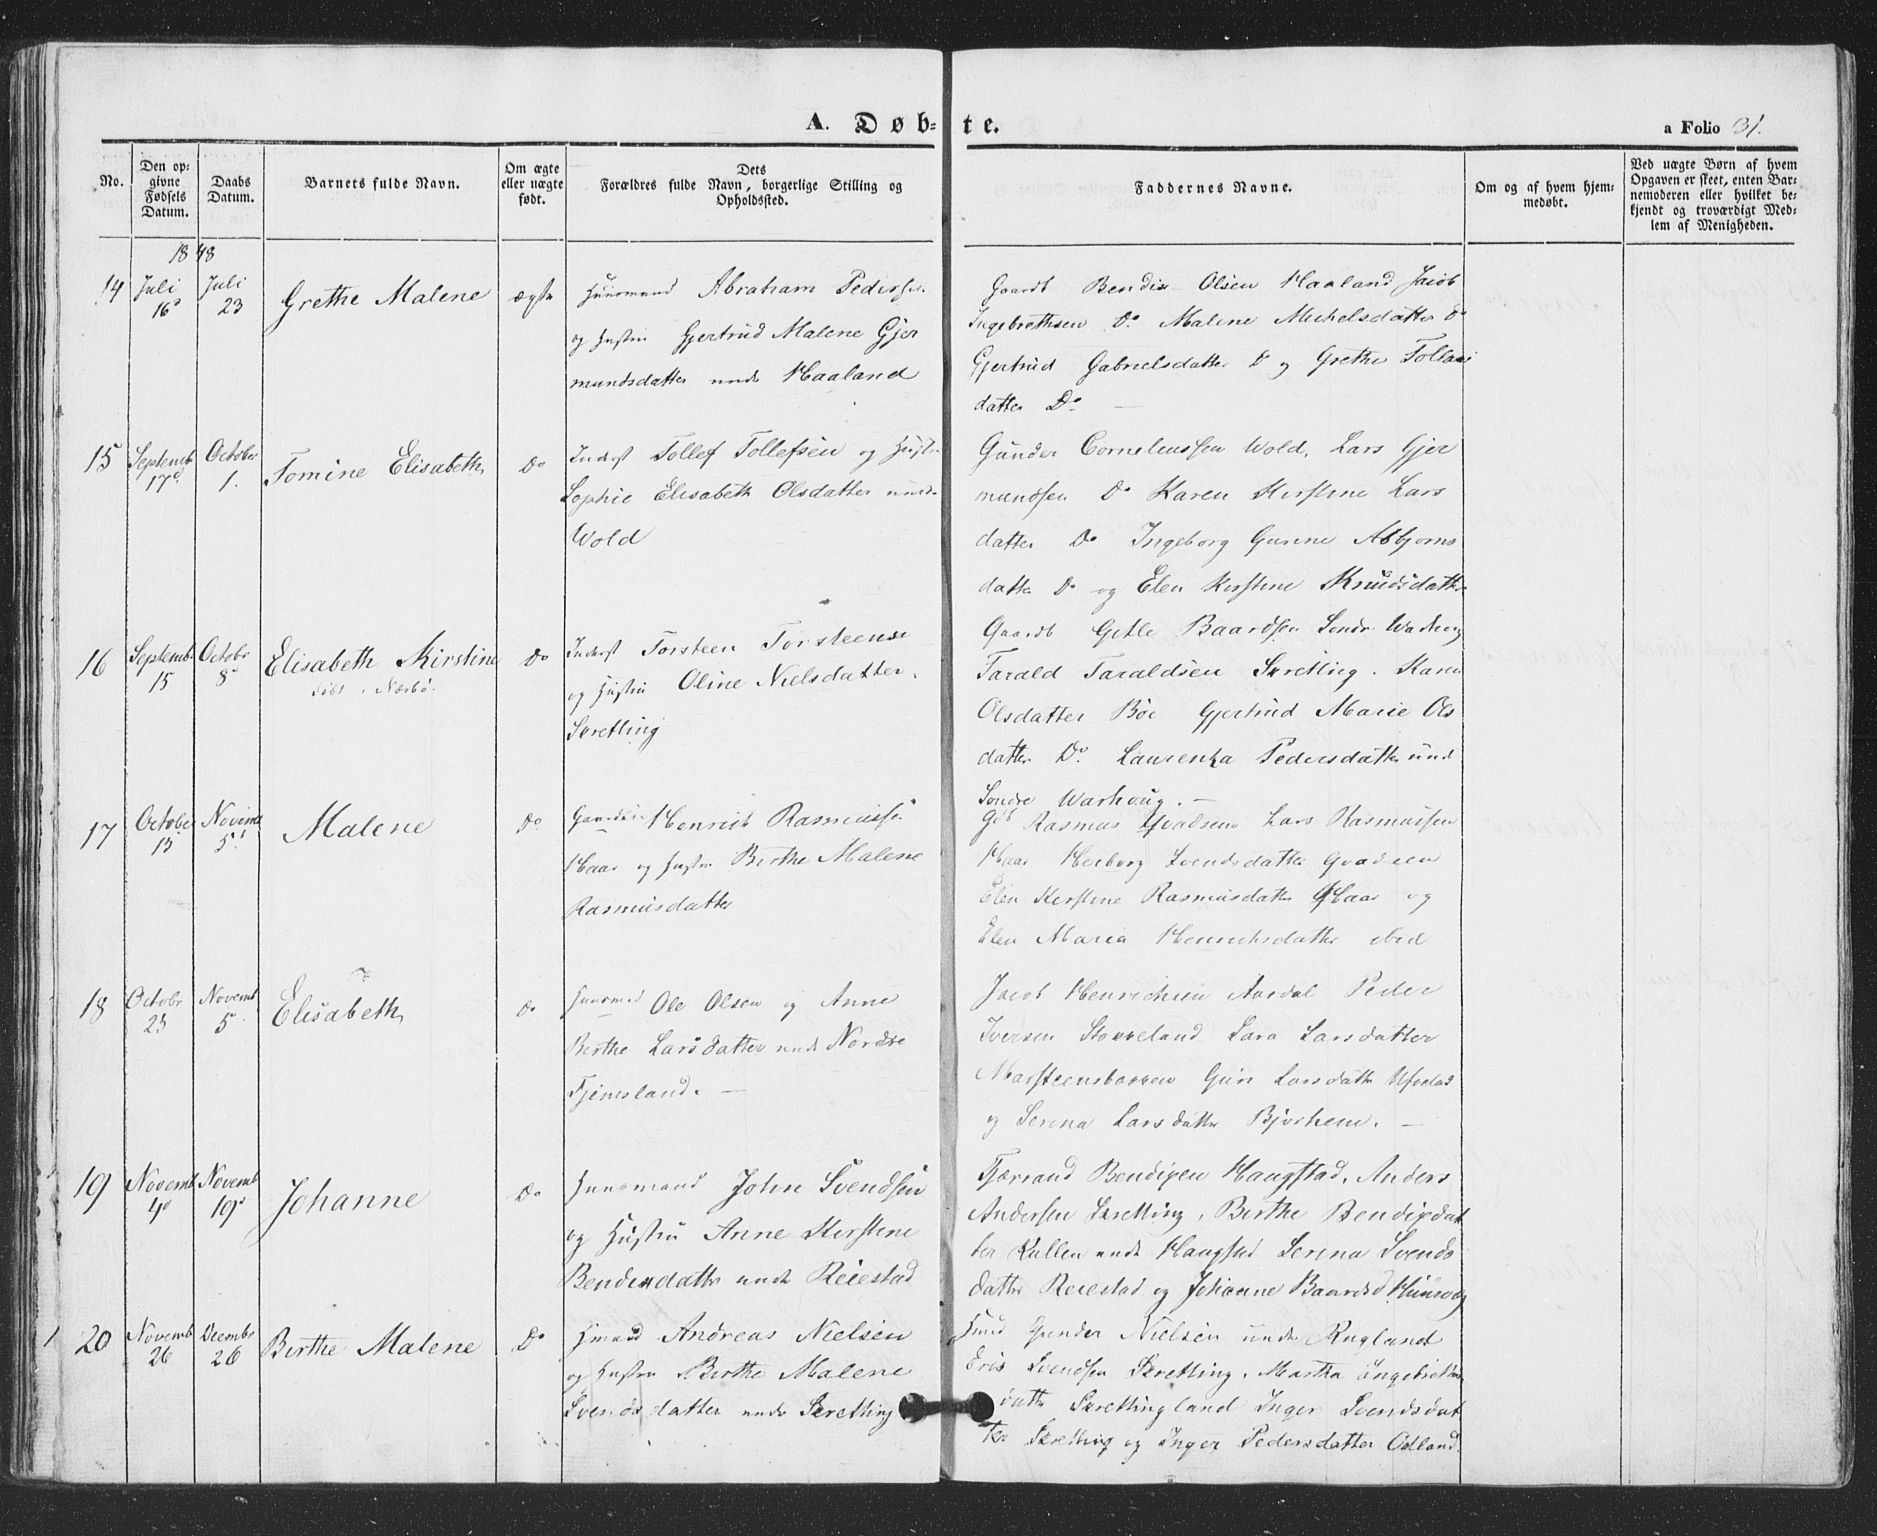 A. Døb-te.
a Folio 31.
No.
Den opgivne Fødsels Datum.
Daabs Datum.
Barnets fulde Navn.
Om ægte eller uægte født.
Dets Forældres fulde Navn, borgerlige Stilling og Opholdssted.
Faddernes Navne.
Om og af hvem hjemmedøbt.
Ved uægte Børn af hvem Opgaven er skeet, enten Barnemoderen eller hvilket bekjendt og troværdigt Medlem af Menigheden.
1848
14 Juli 16 Juli 23 Grethe Malene ægte
Huusmand Abraham Pedersen
og Hustru Gjertrud Malene Gjer
mundsdatter unde Haaland
Gaardb Bendix Olsen Haaland Jacob
Ingebrethsen Do Malene Michelsdatter Do
Gjertrud Gabrielsdatter Do og Grethe
datter Do
15 Septemb 17 October 1. Tomine Elisabeth Do
Inderst Tollef Tollefsen og Hustru
Sophie Elisabeth Olsdatter unde
Wold
Gunder Corneliussen Wold, Lars Gjer
mundsen Do Karen Kirstine Lars
datter Do Ingeborg Gurine Asbjorns
datter Do og Elen Kirstine Knudsdatter
16 Septemb 15 Octobr 8 Elisabeth Kirstine Do
døbt i Nærbø.
Inderst Torsteen Torsteensen
og Hustru Oline Nielsdatter.
Skretting
Gaardb Getle Baardsen Søndr Warhoug
Tarald Taraldsen Skretting. Karen
Olsdatter Bøe Gjertrud Marie Ols
datter Do. Laurentza Pedersdatter und
Søndre Warhoug.
17 October 15 Novemb 5 Malene Do
Henrik Rasmussen
Haar og Hustru Berthe Malene
Rasmusdatter
Gdb Rasmus Lars Rasmussen
Haar Herborg Svendsdatter
Elen Kirstine Rasmusdatter Haar og
Elen Maria Henrichsdatter ibid
18 Octobr 23 Novemb 5 Elisabeth Do
Huusmd Ole Olsen og Anne
Berthe Larsdatter unde Nordre
Tjemsland.
Jacob Henrichsen Aardal Peder
Iversen Stokkeland Sara Larsdatter
Marsteensbakken Guri Larsdatter
og Serina Larsdatter Bjorhem.
19 Novemb 4 Novemb 19 Johanne Do
Huusmand John Svendsen
og Hustru Anne Kirstine
Bendixdatter unde Reiestad
Tjærrand Bendixen Haugstad. Anders
Andersen Skretting. Berthe Bendixdat
ter Kallen unde Haugstad Serina Svends
datter Reiestad og Johanne Baardsd
20 Novemb 26 Decembr 26 Berthe Malene Do
Hmand Andreas Nielsen
og Hustru Berthe Malene
Svendsdatter unde Skretting
Hmd Gunder Nielsen unde Rugland
Eric Svendsen Skretting. Martha Ingebrethse
datter Skrettingland Inger Svendsdat
ter Skretting og Inger Pedersdatter Odland.